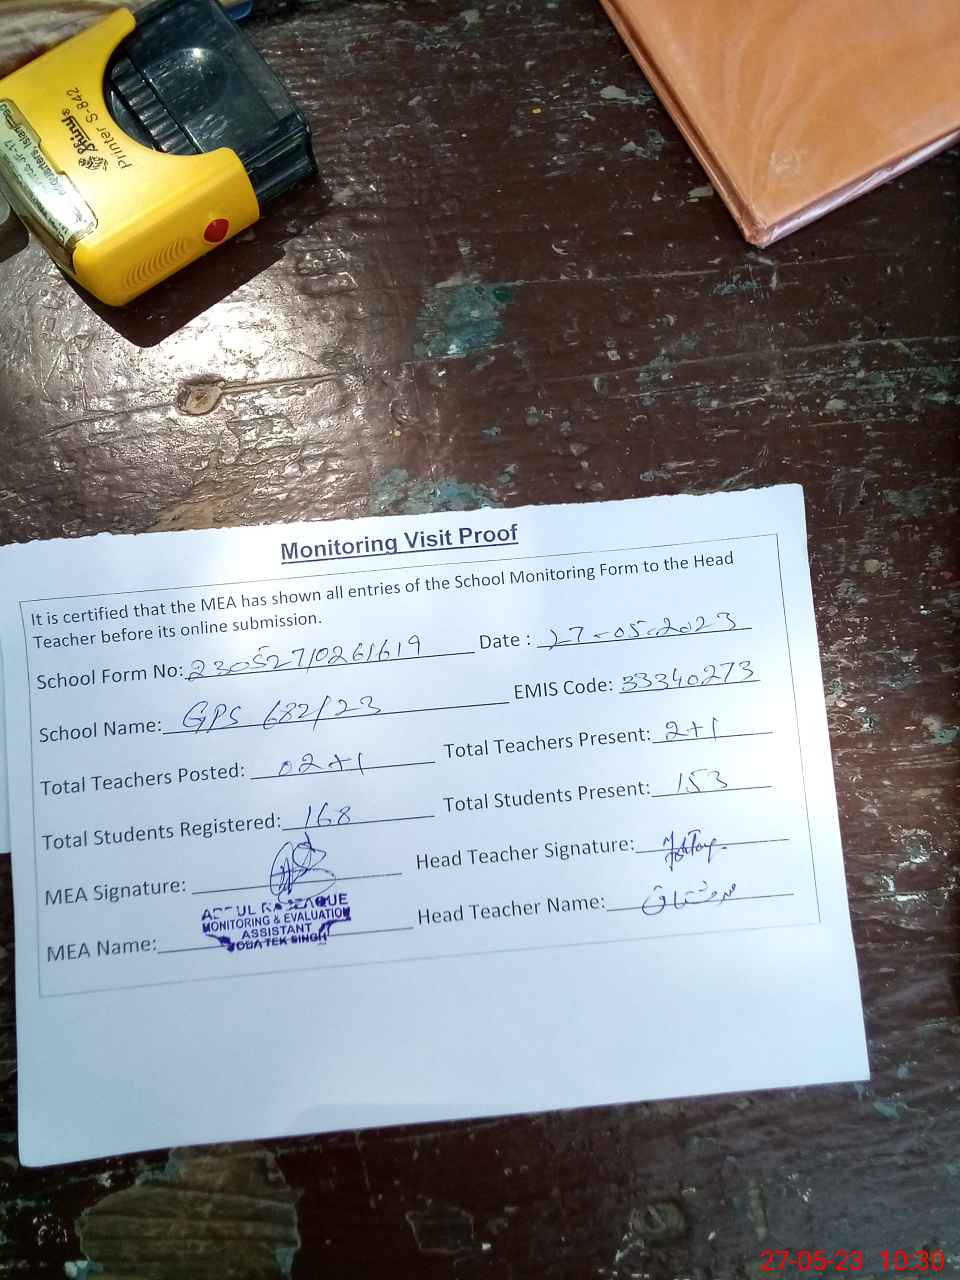 Shiny®
Printer S-842
Monitoring Visit Proof
It is certified that the MEA has shown all entries of the School Monitoring Form to the Head
Teacher before its online submission.
School Form No: 230527/0261619 Date : 27-05-2023
School Name: GPS 682/23 EMIS Code: 33340273
Total Teachers Posted: 02+1 Total Teachers Present: 2+1
Total Students Registered: 168 Total Students Present: 153
MEA Signature: Head Teacher Signature:
MONITORING & EVALUATION
ASSISTANT
TEK SINGH
MEA Name: Head Teacher Name:
27-05-23 10:30